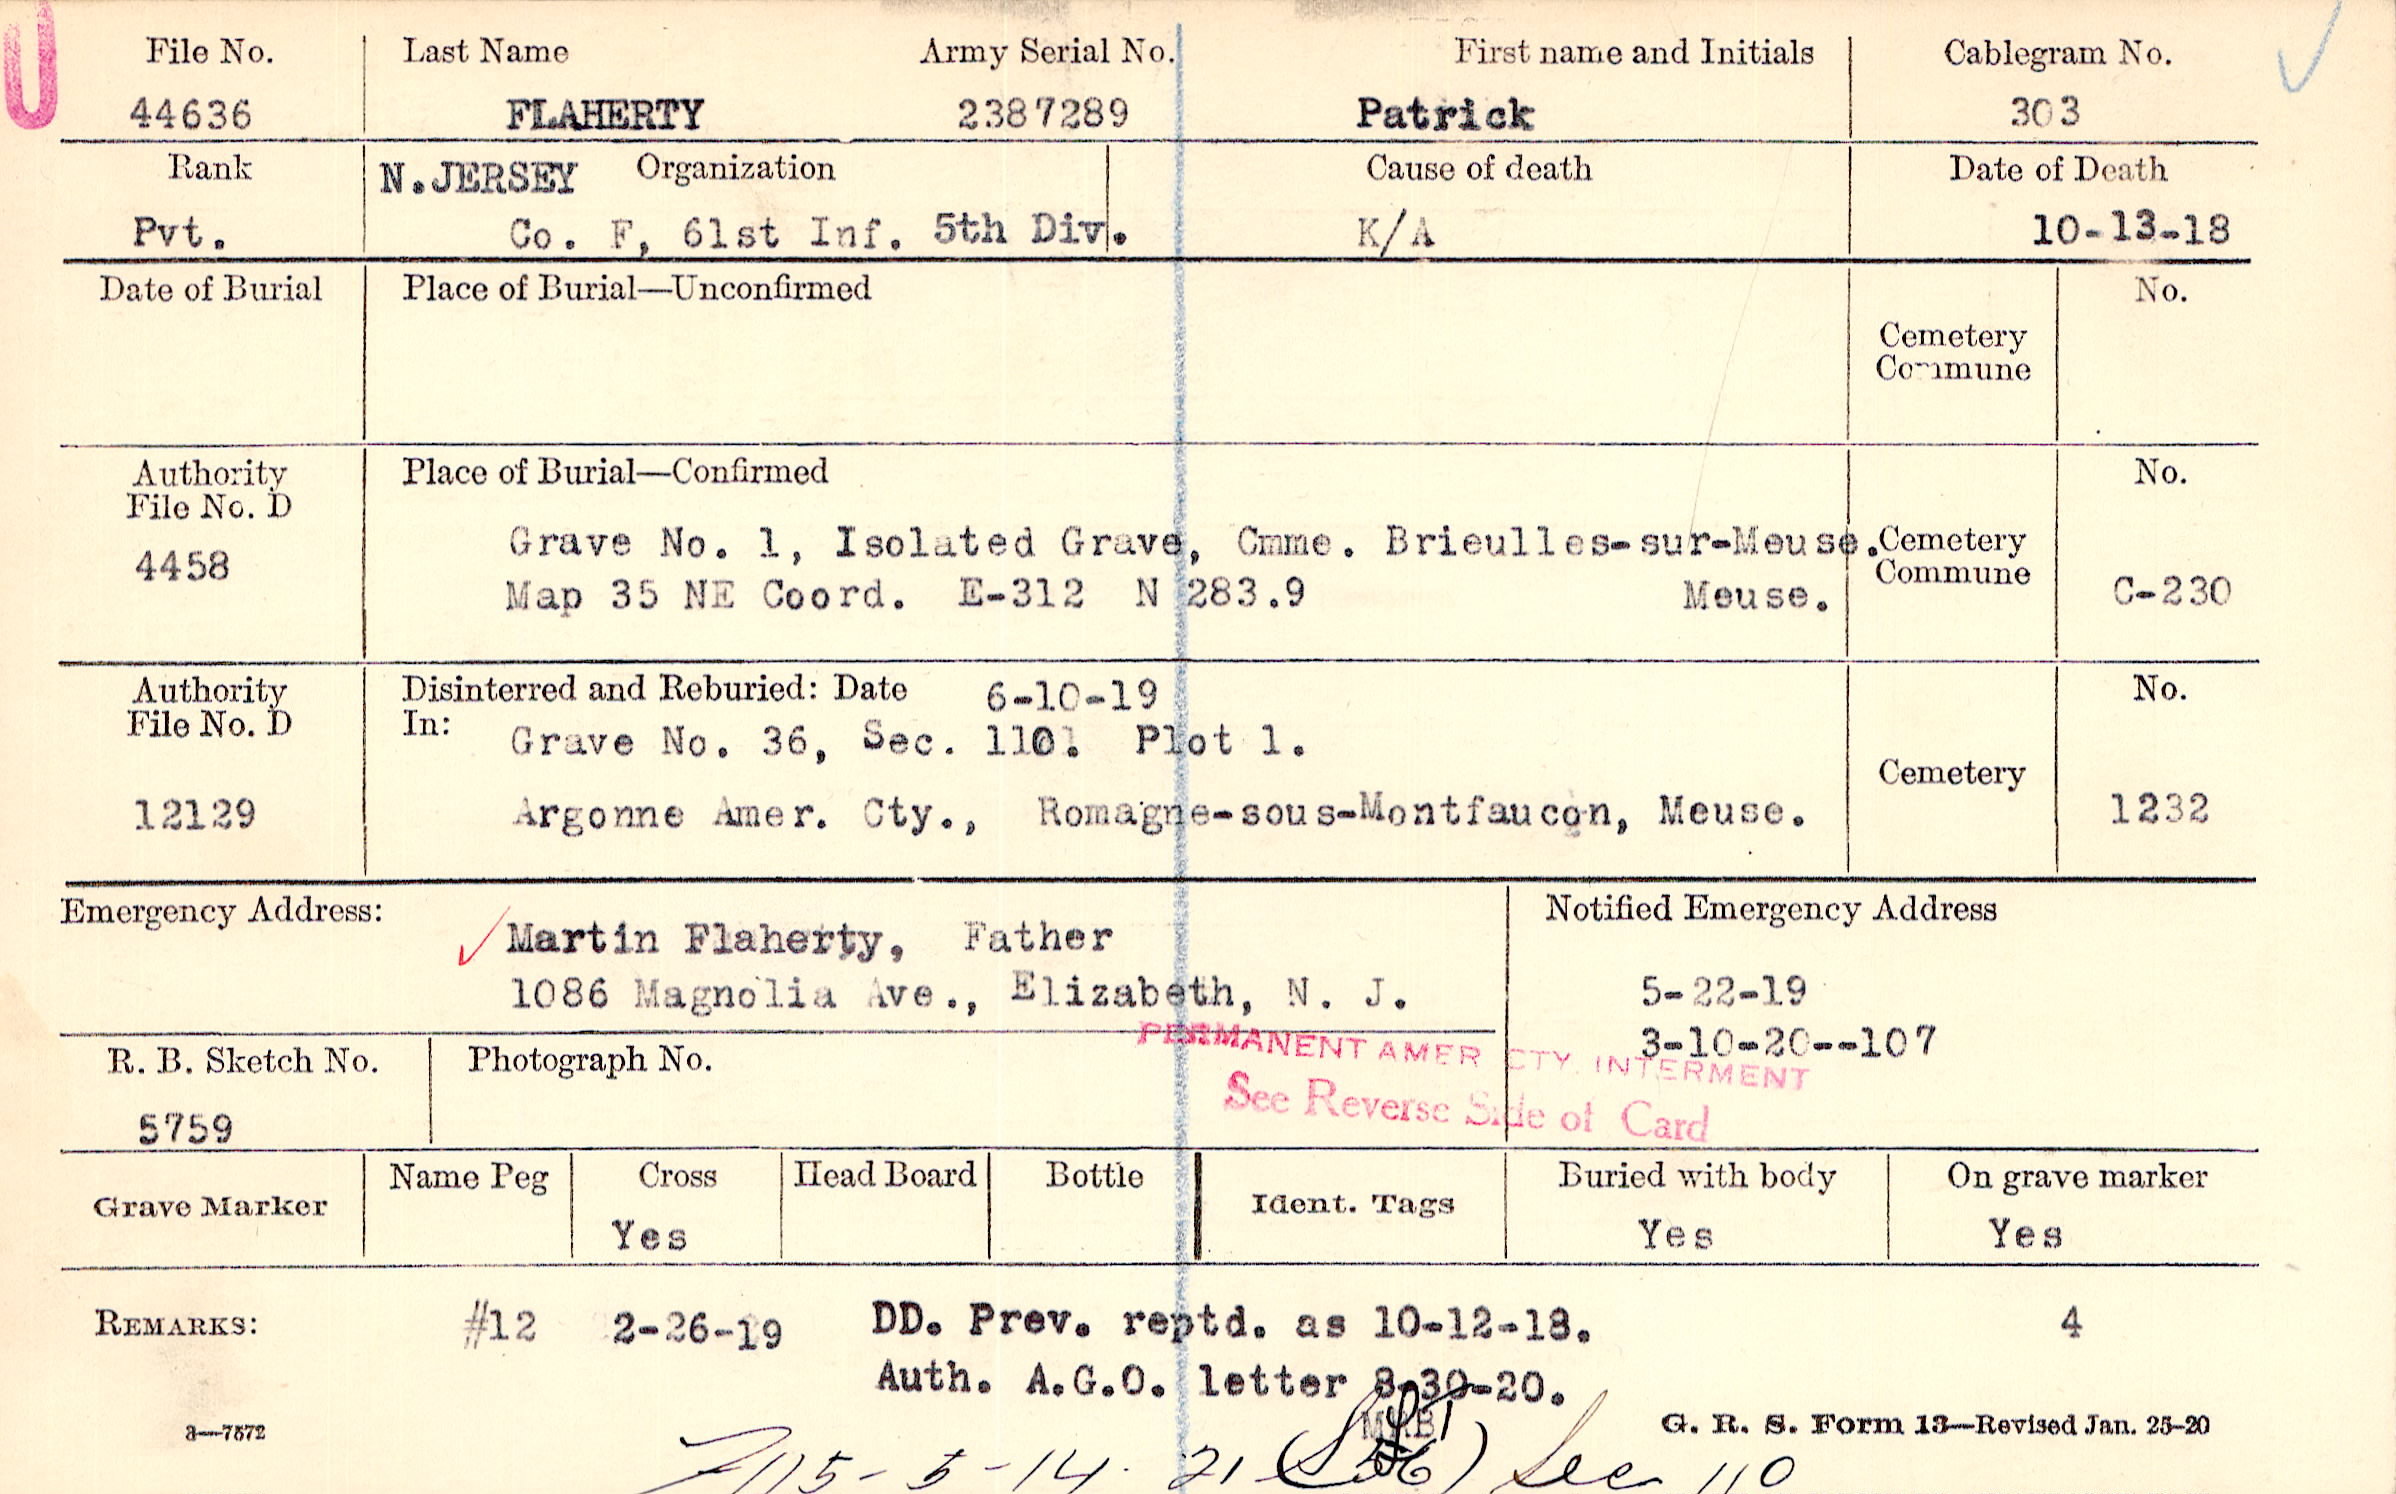 File No. Last Name Army Serial No. First name and Initials Cablegram No.
44636 FLAHERTY 2387289 Patrick 303
Rank N.JERSEY Organization Cause of death Date of Death
Pvt. Co. F, 61st Inf. 5th Div. K/A 10-13-18
Date of Burial Place of Burial—Unconfirmed No.
Cemetery
Commune
Authority Place of Burial—Confirmed No.
File No. D
Grave No. 1, Isolated Grave, Cmme. Brieulles-sur-Meuse. Cemetery
4458 Commune
Map 35 NE Coord. E-312 N 283.9 Meuse. C-230
Authority Disinterred and Reburied: Date 6-10-19 No.
File No. D In: Grave No. 36, Sec. 110. Plot 1.
Cemetery
12129 Argonne Amer. Cty., Romagne-sous-Montfaucon, Meuse. 1232
Emergency Address: Notified Emergency Address
Martin Flaherty, Father
1086 Magnolia Ave., Elizabeth, N. J. 5-22-19
3-10-20--107
PERMANENT AMER CTY. INTERMENT
R. B. Sketch No. Photograph No.
See Reverse Side of Card
5759
Grave Marker Name Peg Cross Head Board Bottle Ident. Tags Buried with body On grave marker
Yes Yes Yes
REMARKS: #12 2-26-19 DD. Prev. reptd. as 10-12-18. 4
Auth. A.G.O. letter 8-30-20.
MRB
3—7572 G. R. S. Form 13—Revised Jan. 25-20
5-14-21 See 110